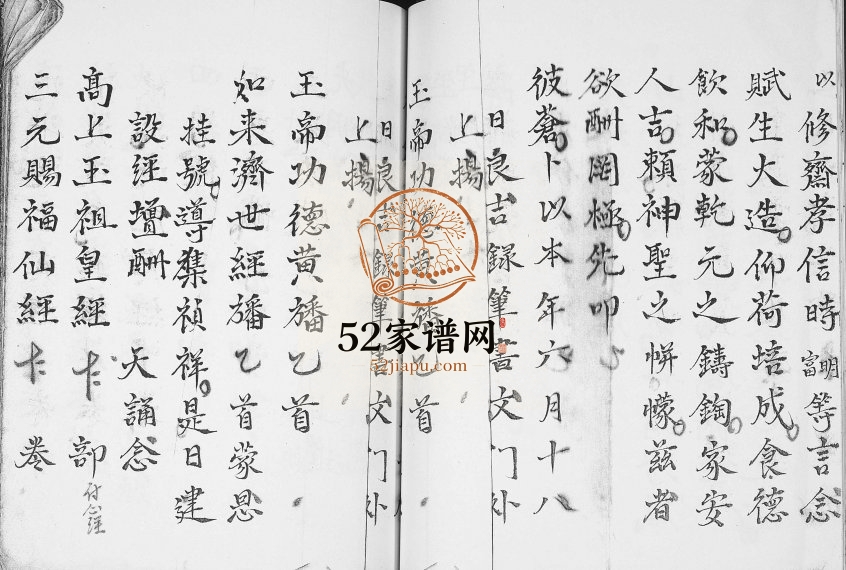 以修齋孝信時明富等言念
賦生大造仰荷培成食德
飲和蒙乾元之鑄錭家安
人吉頼神聖之帡幪茲者
欲酬罔極先叩
彼蒼卜以本年六月十八
日良吉録筆書文门卦
上揚
玉帝功德黄旛乙首
日良吉録筆書文门卦
上揚
玉帝功德黄旛乙首
如来濟世經旛乙首蒙恩
挂號導集禎祥是日建
設經壇酬天誦念
高上玉祖皇經卞部
三元賜福仙經卞卷
52家谱网
52jiapu.com